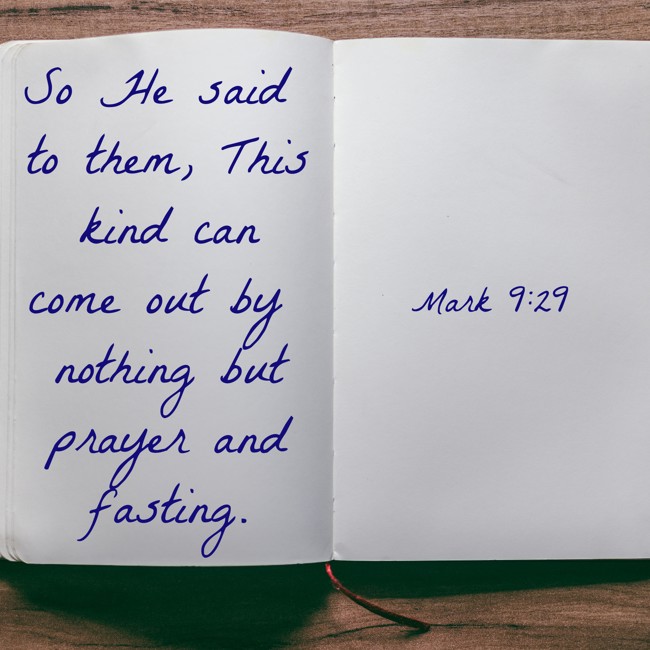 So He said
to them, This
kind can
come out by
nothing but
prayer and
fasting.
Mark 9:29